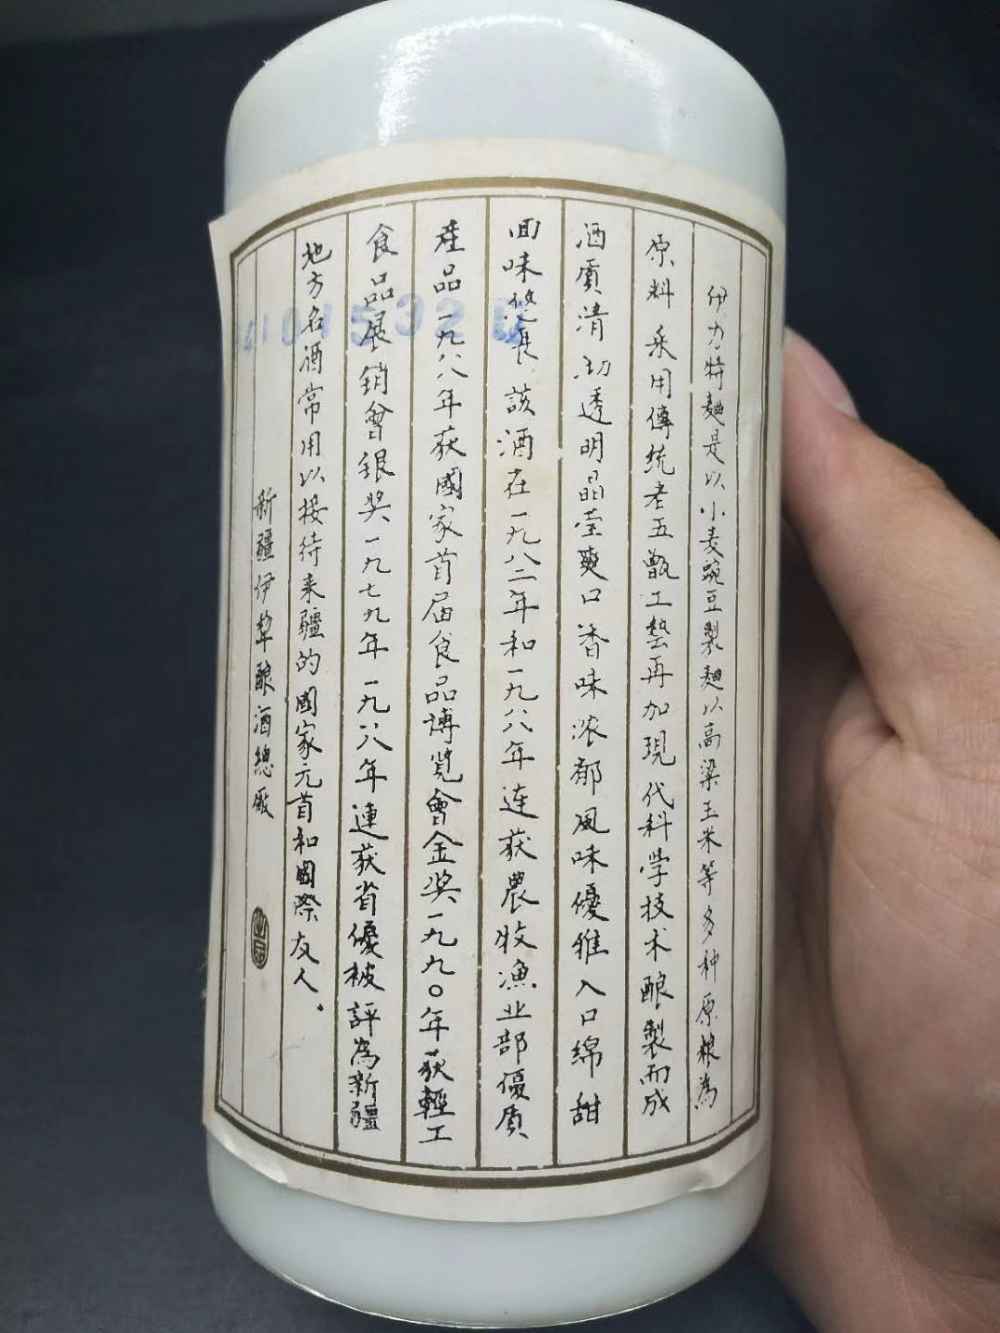 伊力特麯是以小麦豌豆製麯以高粱玉米等多种原粮為
原料采用傳统老五甑工埶再加現代科学技术酿製而成
酒质清沏透明晶莹爽口香味浓郁風味優雅入口綿甜
回味悠長該酒在一九八二年和一九八八年连获農牧漁业部優质
産品一九八八年获國家首届食品博览會金奖一九九〇年获輕工
食品展销會银奖一九七九年一九八八年連获省優被評為新疆
地方名酒常用以接待来疆的國家元首和國際友人。
新疆伊犂酿酒總廠